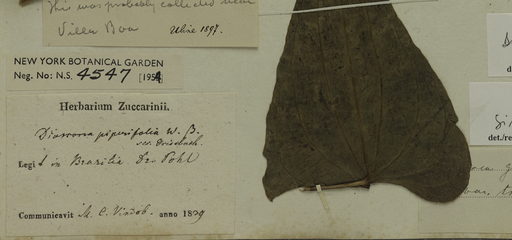 This was probably collected near
Villa Boa Uline 1897.
NEW YORK BOTANICAL GARDEN
Neg. No: N.S. 4547 [1954]
Herbarium Zuccarinii.
Dioscorea piperifolia W. β.
sec. Grisebach.
Legit in Brasilia Dr. Pohl
Communicavit M. C. Vindob. anno 1839
det./re